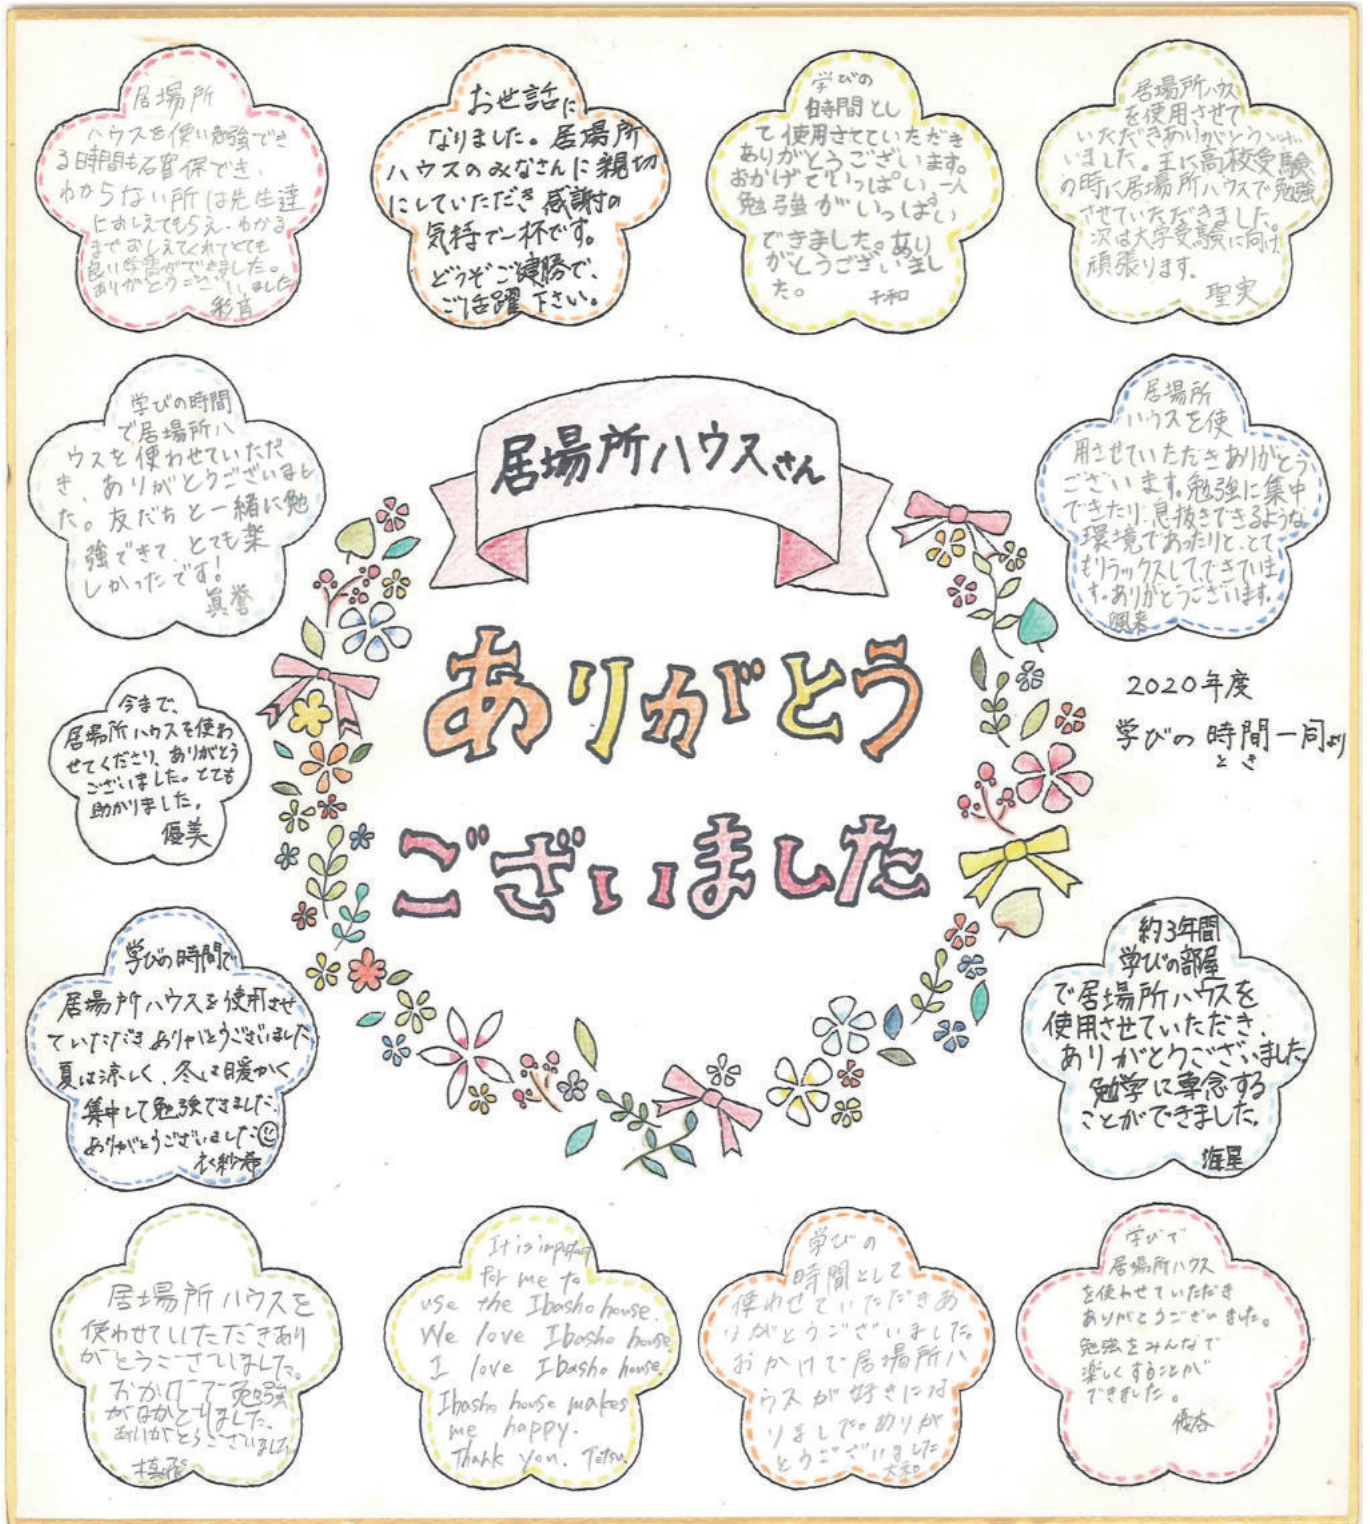 居場所
ハウスを使い勉強でき
る時間も確保でき、
わからない所は先生達
におしえてもらえ、わかる
までおしえてくれてとても
良い学習ができました。
ありがとうございました
彩音
お世話に
なりました。居場所
ハウスのみなさんに親切
にしていただき感謝の
気持で一杯です。
どうぞご健勝で、
ご活躍下さい。
学びの
時間とし
て使用させていただき
ありがとうございます。
おかげでいっぱい、一人
勉強がいっぱい
できました。あり
がとうございまし
た。
千和
居場所ハウス
を使用させて
いただきありがとうござい
ました。主に高校受験
の時に居場所ハウスで勉強
させていただきました。
次は大学受験に向け
頑張ります。
聖実
居場所ハウスさん
学びの時間
で居場所ハ
ウスを使わせていただ
き、ありがとうございまし
た。友だちと一緒に勉
強できて、とても楽
しかったです!
眞誉
居場所
ハウスを使
用させていただきありがとう
ございます。勉強に集中
できたり、息抜きできるような
環境であったりと、とて
もリラックスしてできていま
す。ありがとうございます。
颯来
ありがとう
ございました
2020年度
学びの時間一同より
とき
今まで、
居場所ハウスを使わ
せてくださり、ありがとう
ございました。とても
助かりました。
優美
学びの時間で
居場所ハウスを使用させ
ていただきありがとうございました
夏は涼しく、冬は暖かく
集中して勉強できました。
ありがとうございました
衣紗希
約3年間
学びの部屋
で居場所ハウスを
使用させていただき、
ありがとうございました。
勉学に専念する
ことができました。
海星
居場所ハウスを
使わせていただきあり
がとうございました。
おかげで勉強
がはかどりました。
ありがとうございました
It is important
for me to
use the Ibasho house.
We love Ibasho house
I love Ibasho house
Ibasho house makes
me happy.
Thank you. Tetsu.
学びの
時間として
使わせていただきあ
りがとうございました。
おかげで居場所ハ
ウスが好きにな
りました。ありが
とうございました
大和
学びで
居場所ハウス
を使わせていただき
ありがとうございました。
勉強をみんなで
楽しくすることが
できました。
優杏